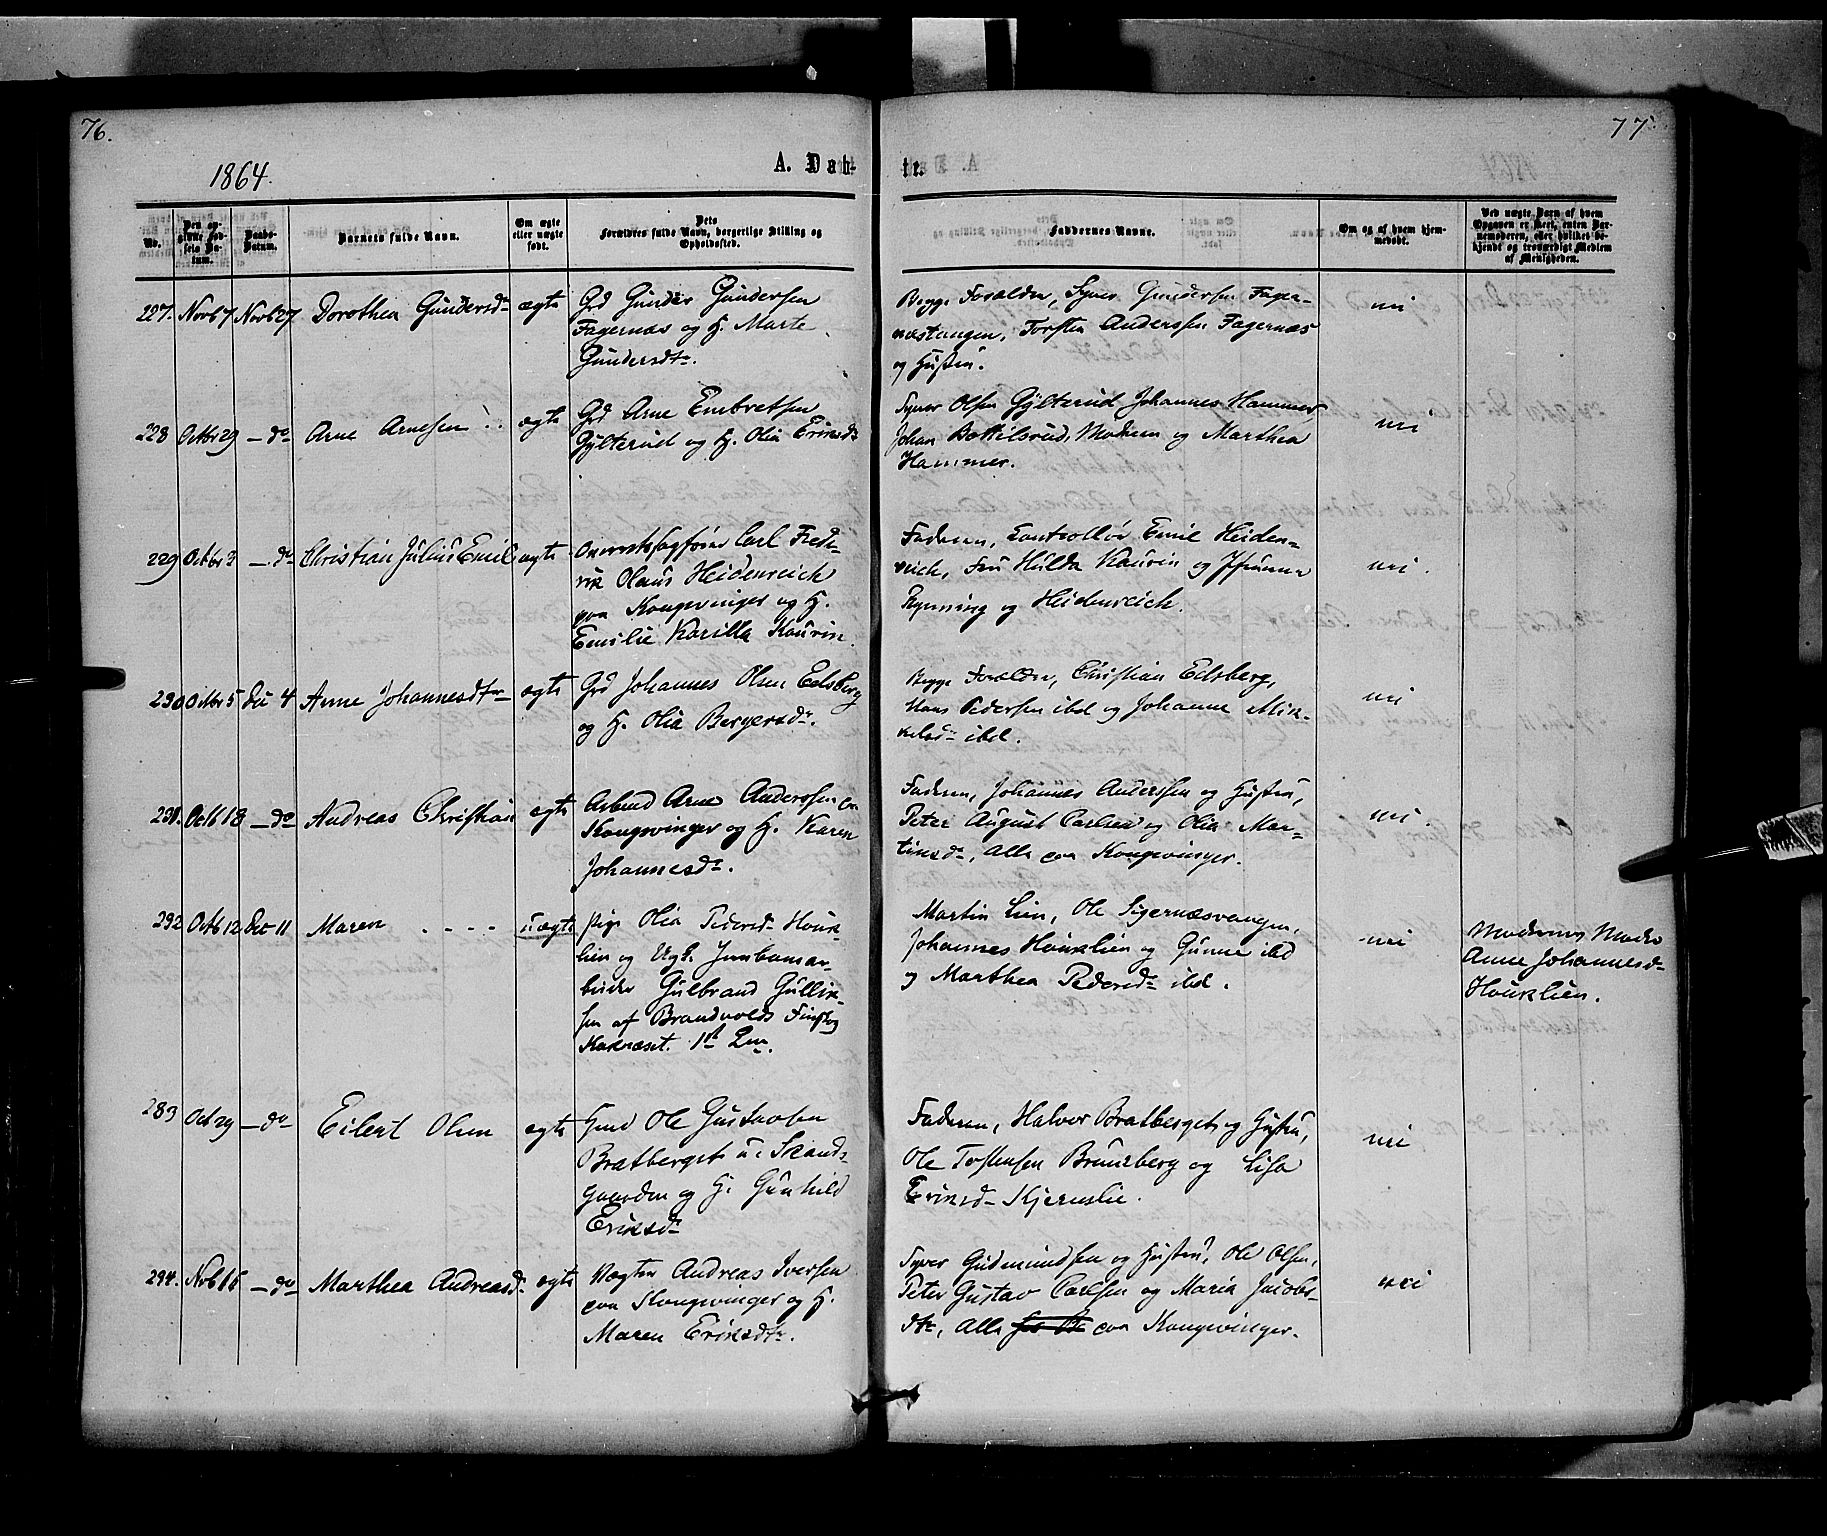 76.
1864.
A. Dah-
No.
Den op-
givne Fød-
sels Da-
tum.
Daabs-
Datum.
Barnets fulde Navn.
Om ægte
eller uægte
født.
Dets
Forældres fulde Navn, borgerlige Stilling og
Opholdssted.
227. Novb 7 Novb 27 Dorothea Gundersdtr ægte Grd Gunder Gundersen
Fagernæs og H. Marte
Gundersdtr.
228 Octbr 29 — do Arne Arnesen ægte Grd Arne Embretsen
Gylterud og H. Olia Eriksdtr
229 Octbr 3 — do Christian Julius Emil ægte Carl Fred-
rik Olaus Heidenreich
paa Kongsvinger og H.
Emilie Karilla Kaurin
230 Octbr 5 Dec 4 Anne Johannesdtr ægte Grd Johannes Olsen Edsberg
og H. Olia Bergersdr.
231. Octb 18 — do Andreas Christian ægte Arbmd Arne Anderssen
Kongsvinger og H. Karen
Johannesdr.
232 Octb 12 Dec 11 Maren - - - - uægte Pige Olia Pedersdr Houk-
lien og Ugk. Jernbanear-
beider Gulbrand Gullik-
sen af Brandvolds Finskog
1st Lm.
283 Oct 29 — do Eilert Olsen ægte Hmd Ole Gustavsen
Bratberget u. Skands-
gaarden og H. Gunhild
Eriksdr
294. Novb 16 — do Marthea Andreasd. ægte Vægter Andreas Iversen
paa Kongsvinger og H.
Maren Eriksdtr.
77.
te.
Faddernes Navne.
Om og af hvem hjem-
medøbt.
Ved uægte Barn af hvem
Opgaven er skeet, enten Bar-
nemoderen, eller hvilket be-
kjendt og troværdigt Medlem
af Menigheden.
Begge Forældre, Syver Gundersen Fager-
næstangen, Torsten Anderssen Fagernæs
og Hustru.
nei
Syver Olsen Gylterud, Johannes Hammer,
Johan Bottilsrud, Moderen og Marthea
Hammer.
nei
Faderen, Controllør Emil Heiden-
reich, Fru Hulda Kaurin og Jfruerne
Rynning og Heidenreich.
nei.
Begge Forældre, Christian Edsberg,
Hans Pedersen ibd og Johanne Mik-
kelsdr ibd.
nei
Faderen, Johannes Anderssen og Hustru,
Peter August Carlsen og Olia Mar-
tinsdr, Alle paa Kongsvinger.
nei.
Martin Lien, Ole Sigernæsvangen,
Johannes Houklien og Gunne ibd
og Marthea Pedersdr ibd.
nei
Moderens Moder
Anne Johannesdr
Houklien.
Faderen, Halvor Bratberget og Hustru,
Ole Torstensen Brunsberg og Lisa
Eriksdr Kjernslie.
nei
Syver Gudmundsen og Hustru, Ole Olsen,
Peter Gustav Carlsen og Maria Jacobs-
dtr, Alle paa Kongsvinger.
nei